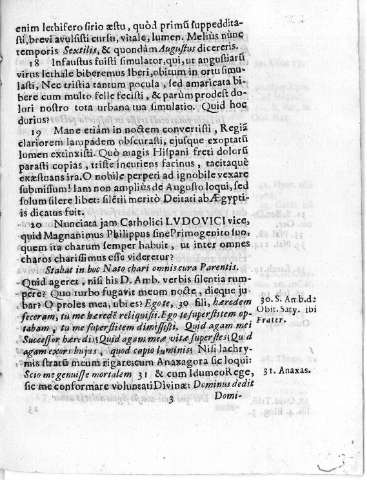 enim lethifero sirio æstu, quòd primũ suppeditta-
sti, brevi avulsisti cursu, vitale, lumen. Meliùs nunc
temporis Sextilis, & quondam Augustus dicereris.
18 Infaustus fuisti simulator, qui, ut angustiarũ
virus lethale biberemus Iberi, obitum in ortu simu-
lasti, Nec tristia tantum pocula, sed amaricata bi-
bere cum multo felle fecisti, & parùm prodest do-
lori nostro tota urbana tua simulatio. Quid hoc
durius?
19 Mane etiàm in noctem convertisti, Regiã
clariorem lampadem obscurasti, ejusque exoptatũ
lumen extinxisti. Quò magis Hispani freti dolorũ
parasti copias, triste incuriens facinus, tacitaquè
exæstuans ira. O nobile perperi ad ignobile vexare
submissum! Iam non ampliùs de Augusto loqui, sed
solum silere libet: silẽtii meritò Deitati ab Ægypti-
is dicatus fuit.
20 Nunciata jam Catholici LVDOVICI vice,
quid Magnanimus Philippus sine Primogenito suo,
quem ita charum semper habuit, ut inter omnes
charos charissimus esse videretur?
Stabat in hoc Nato chari omnis cura Parentis.
Quid ageret, nisi his D. Amb. verbis silentia rum-
pere? Quo turbo fugavit meom noste, dieque ju-
bar? O proles mea, ubi es? Ego te, 30 fili, hæredem
feceram, tu me hærede reliquisti. Ego te superstitem op-
tabam, tu me superstitem dimisisti. Quid agam mei
Successor hæredis? Quid agam meæ vitæ superstes? Qui d
agam exors hujus, quod capio luminis? Nisi lachry-
mis stratũ meum rigare; cum Anaxagora sic loqui:
Scio me genuisse mortalem 31 & cum Idumeo Rege,
sic me conformare voluntati Divinæ: Dominus dedit
30. S. Amb. de
Obit. Saty. ibi
Frater.
31. Anaxas.
3
Domi-